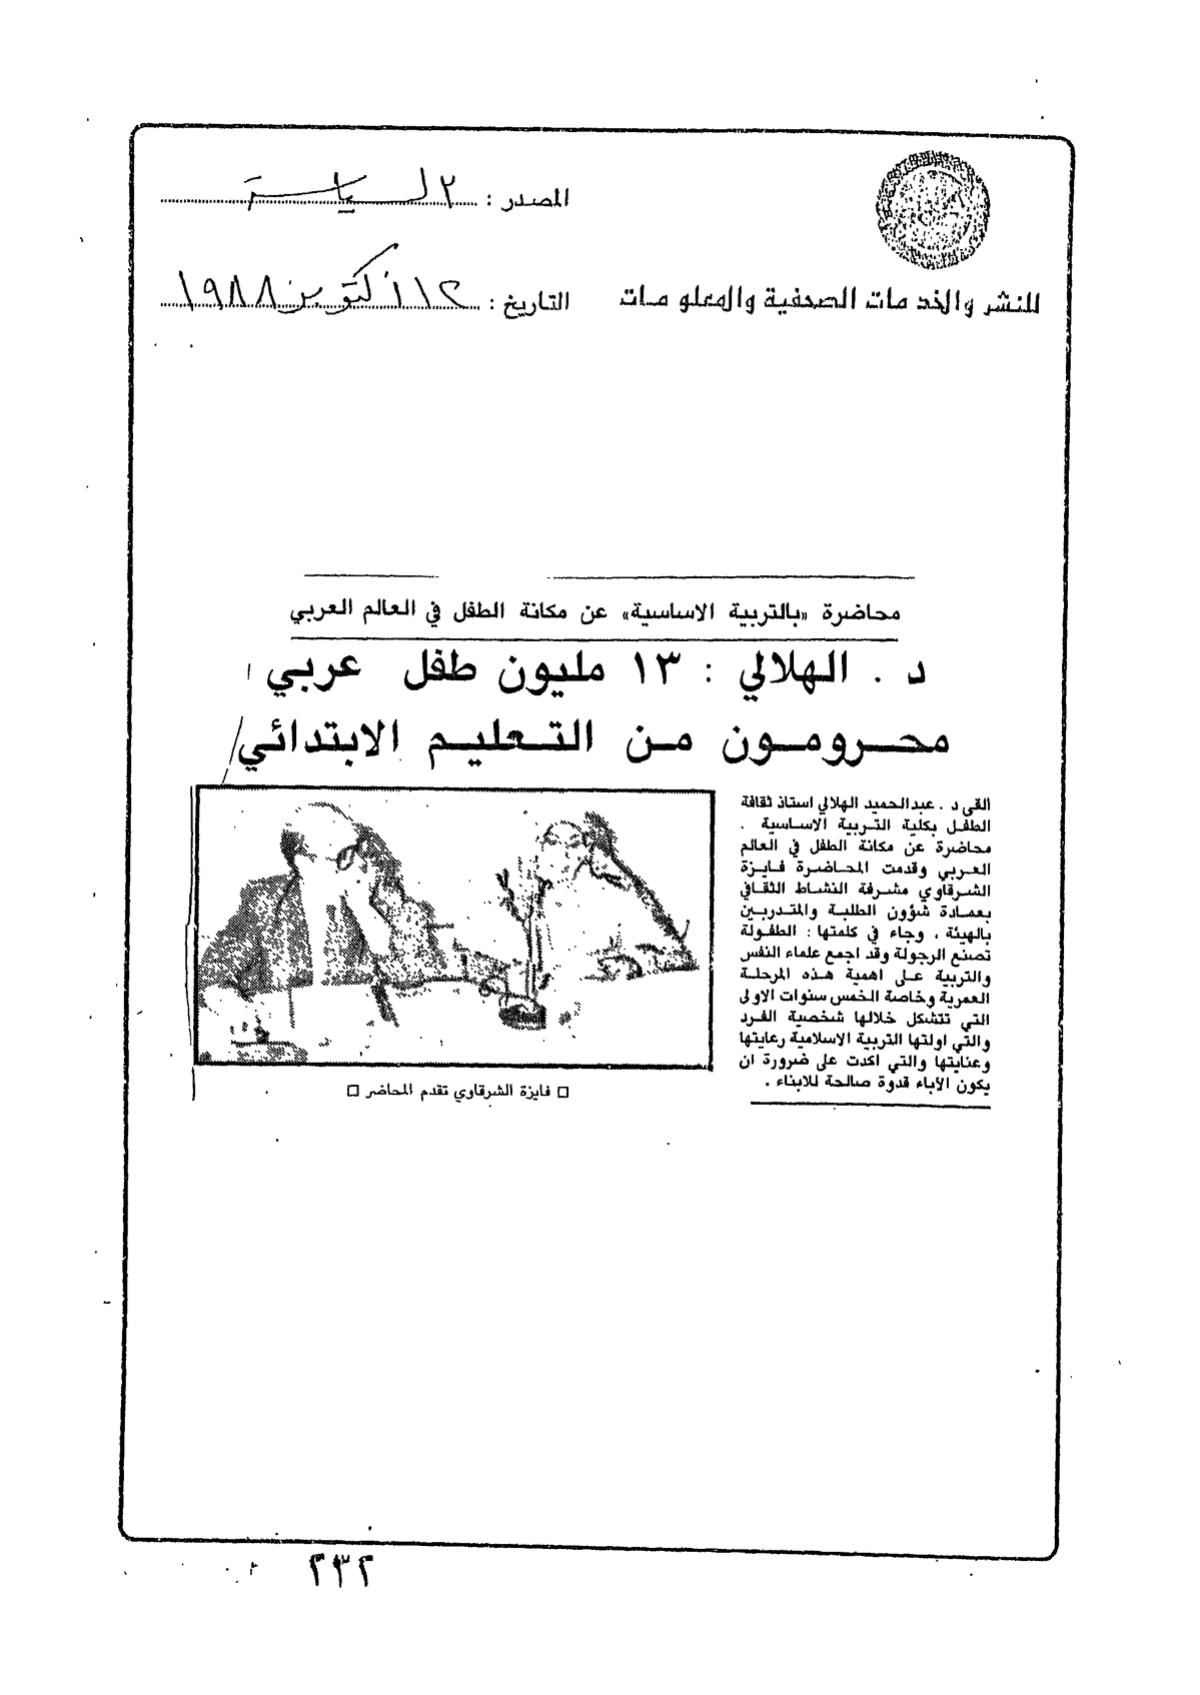 المصدر : السياسة
للنشر والخدمات الصحفية والمعلومات
التاريخ : ١٢ اكتوبر ١٩٨٨
محاضرة «بالتربية الاساسية» عن مكانة الطفل في العالم العربي
د . الهلالي : ١٣ مليون طفل عربي
محرومون من التعليم الابتدائي
القى د . عبدالحميد الهلالي استاذ ثقافة
الطفل بكلية التربية الاساسية .
محاضرة عن مكانة الطفل في العالم
العربي وقدمت المحاضرة فايزة
الشرقاوي مشرفة النشاط الثقافي
بعمادة شؤون الطلبة والمتدربين
بالهيئة ، وجاء في كلمتها : الطفولة
تصنع الرجولة وقد اجمع علماء النفس
والتربية على اهمية هذه المرحلة
العمرية وخاصة الخمس سنوات الاولى
التي تتشكل خلالها شخصية الفرد
والتي اولتها التربية الاسلامية رعايتها
وعنايتها والتي اكدت على ضرورة ان
يكون الآباء قدوة صالحة للابناء .
□ فايزة الشرقاوي تقدم المحاضر □
٢٣٢